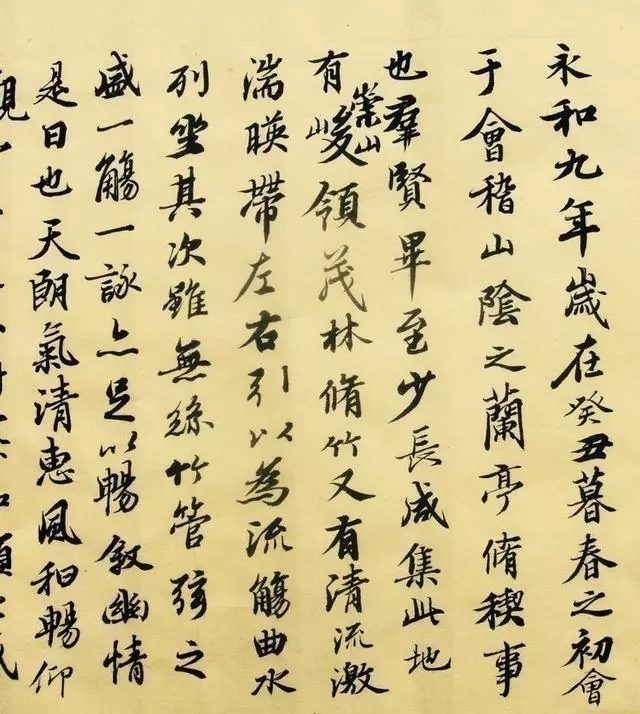 永和九年歲在癸丑暮春之初會
于會稽山陰之蘭亭脩稧事
也羣賢畢至少長咸集此地
有崇山峻領茂林脩竹又有清流激
湍暎帶左右引以為流觴曲水
列坐其次雖無絲竹管弦之
盛一觴一詠亦足以暢敘幽情
是日也天朗氣清惠風和暢仰
觀